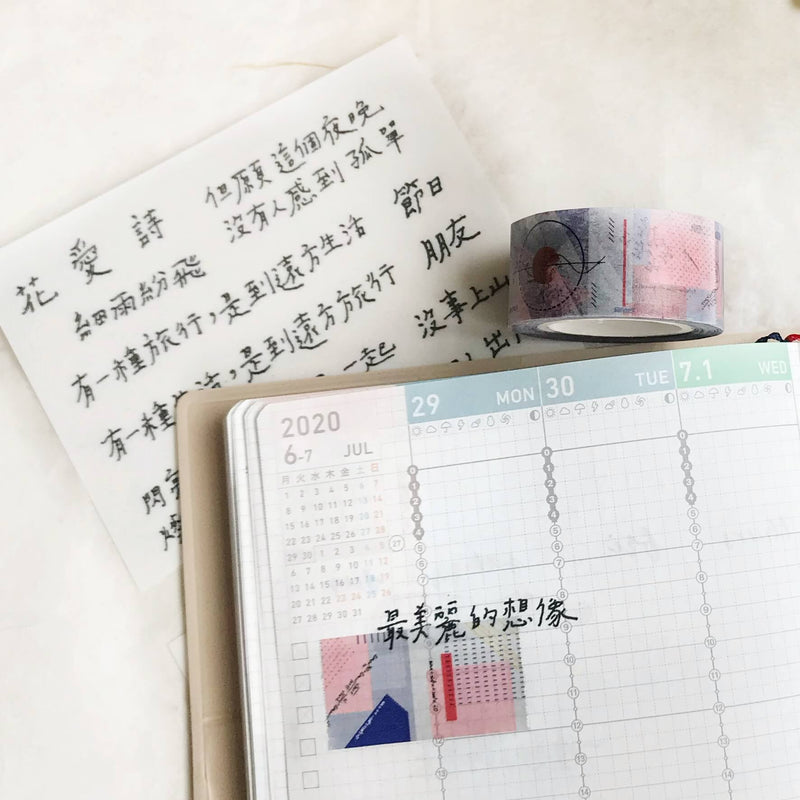 但願這個夜晚
沒有人感到孤單
花 愛 詩
節日
細雨紛飛
朋友
有一種旅行，是到遠方生活
沒事上山
有一種生活，是到遠方旅行
一起
出
閃
2020
6-7 JUL
29 MON
30 TUE
7.1 WED
月 火 水 木 金 土 日
1 2 3 4 5 6 7
8 9 10 11 12 13 14
15 16 17 18 19 20 21
22 23 24 25 26 27 28
29 30 1 2 3 4 5
6 7 8 9 10 11 12
13 14 15 16 17 18 19
20 21 22 23 24 25 26
27 28 29 30 31
27
0 0 0
1 1 1
2 2 2
3 3 3
4 4 4
5 5 5
6 6 6
7 7 7
8 8
最美麗的想像
9 9
10 10
11 11 11
12 12 12
13 13 13
14 14